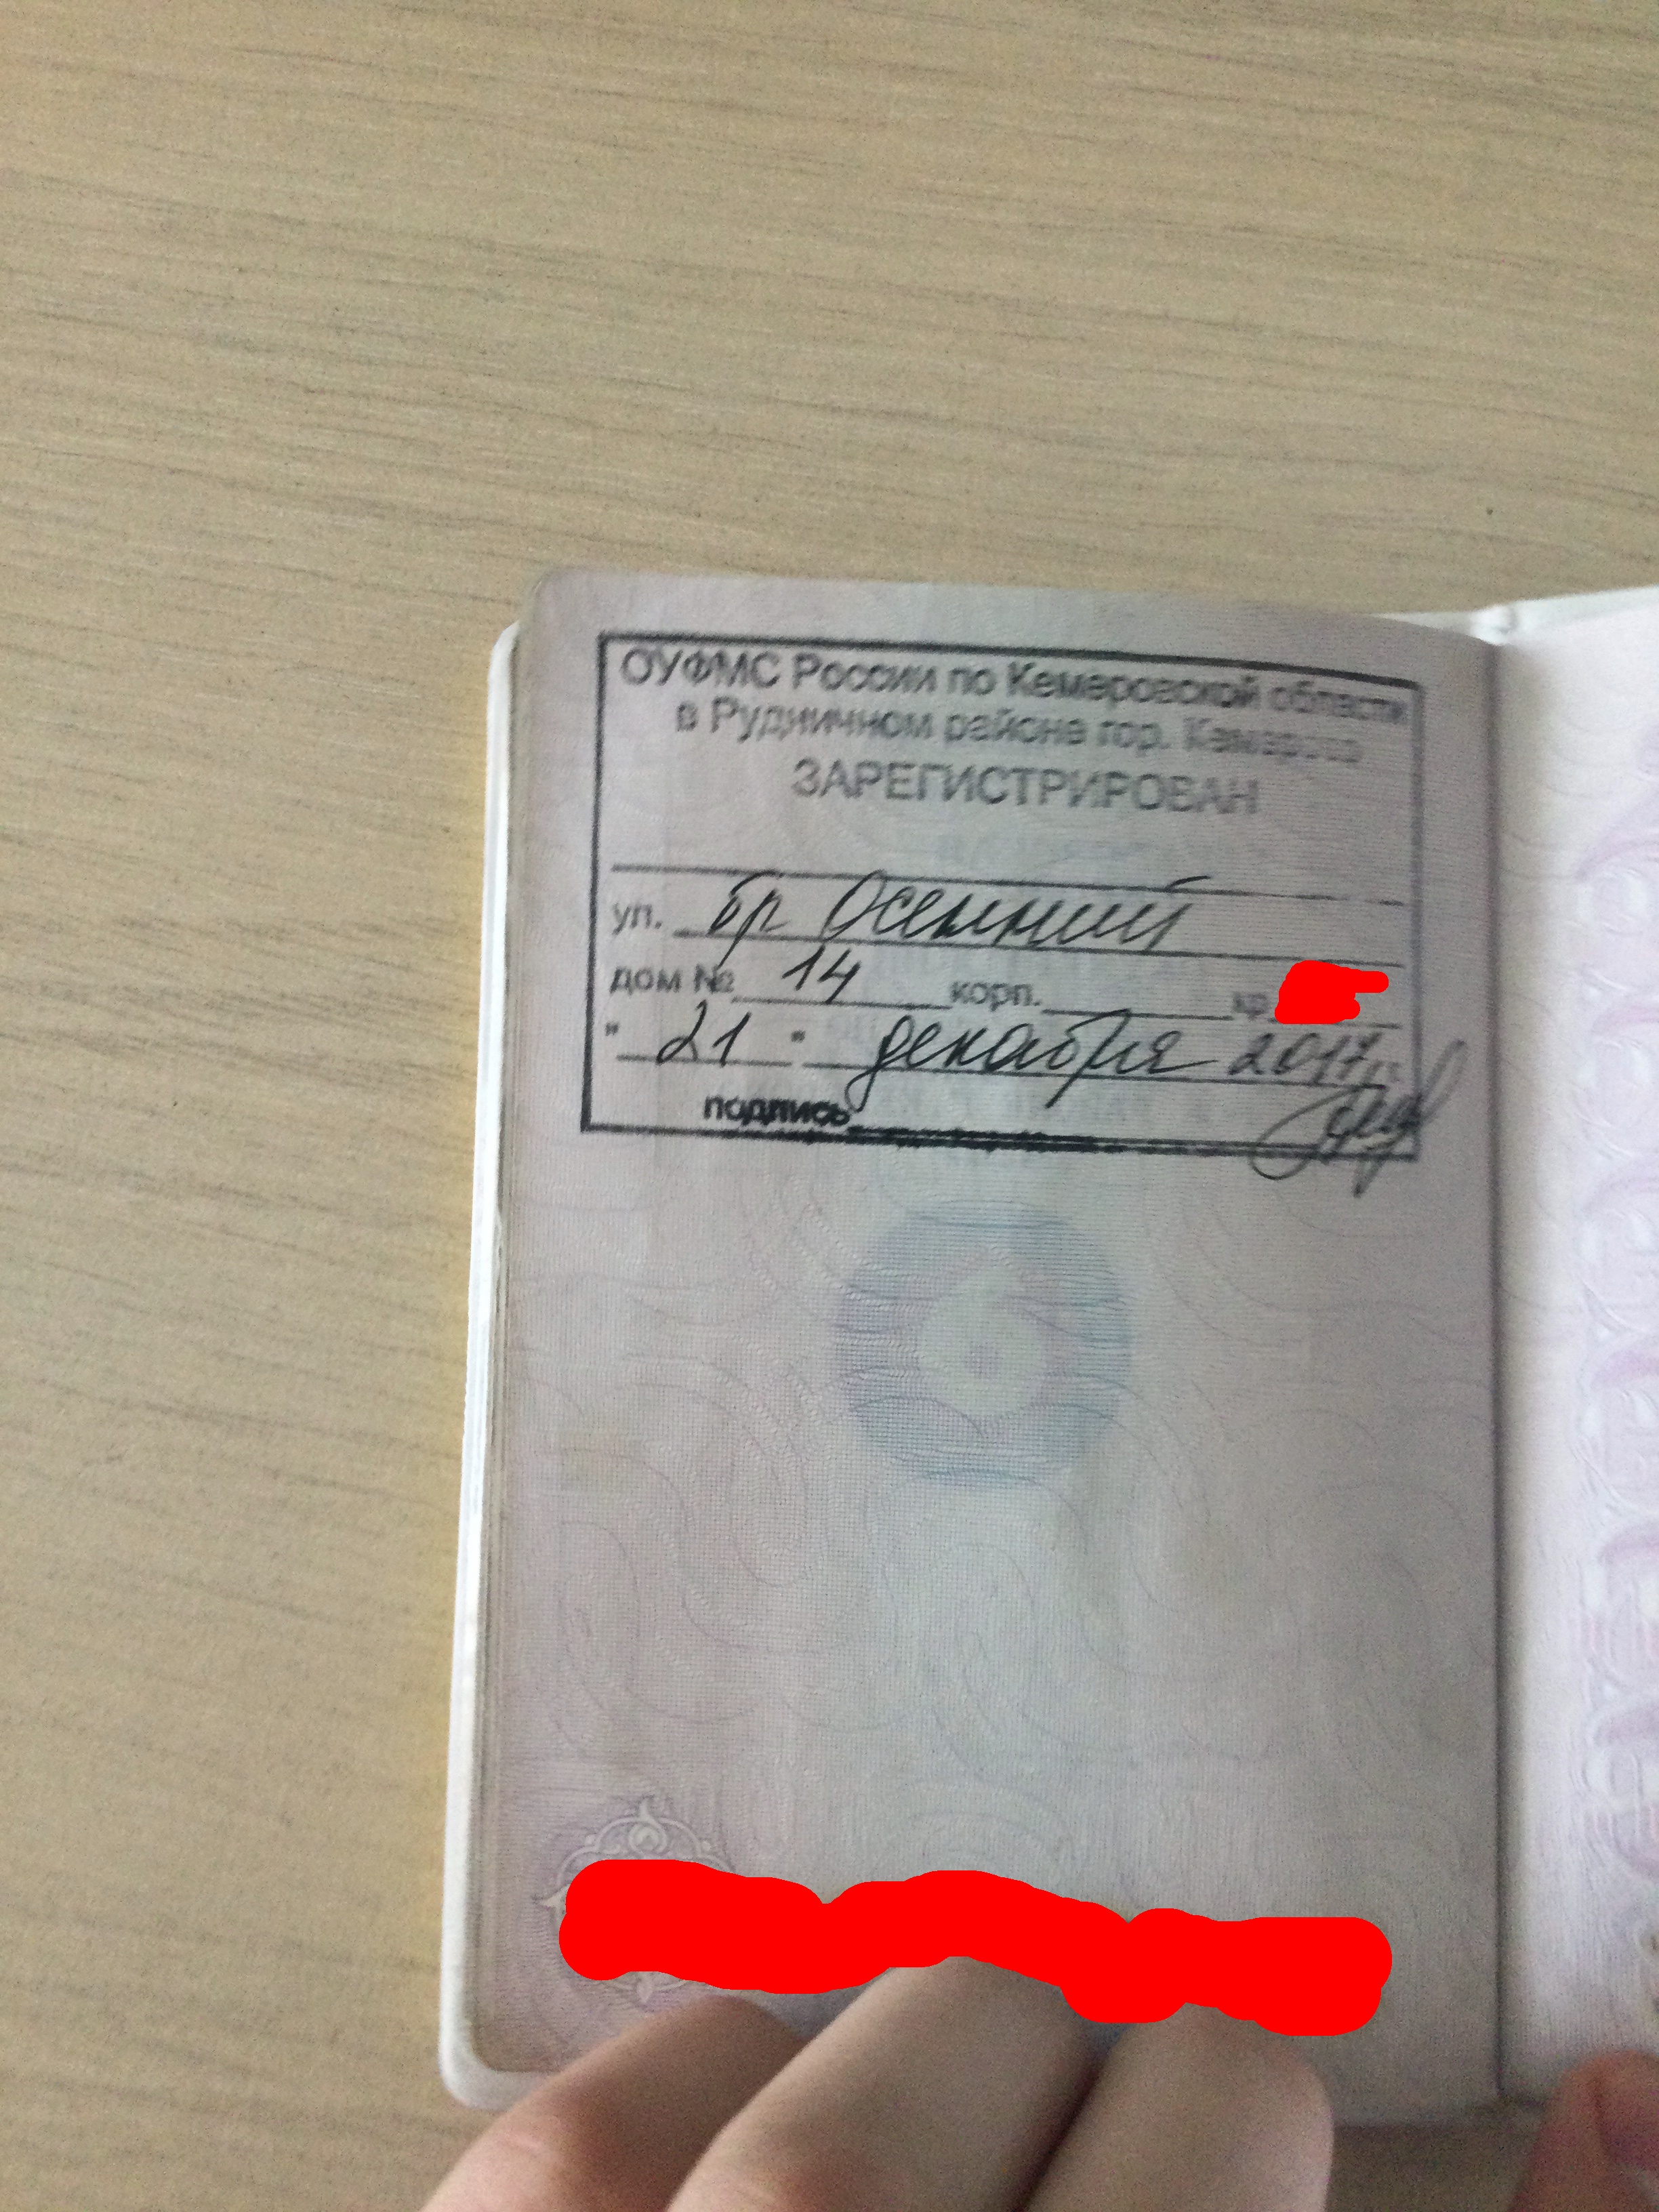 ОУФМС России по Кемеровской области
в Рудничном районе гор. Кемерово
ЗАРЕГИСТРИРОВАН
ул. бр Осенний
дом № 14 корп. кв
" 21 " декабря 2017 г.
подпись